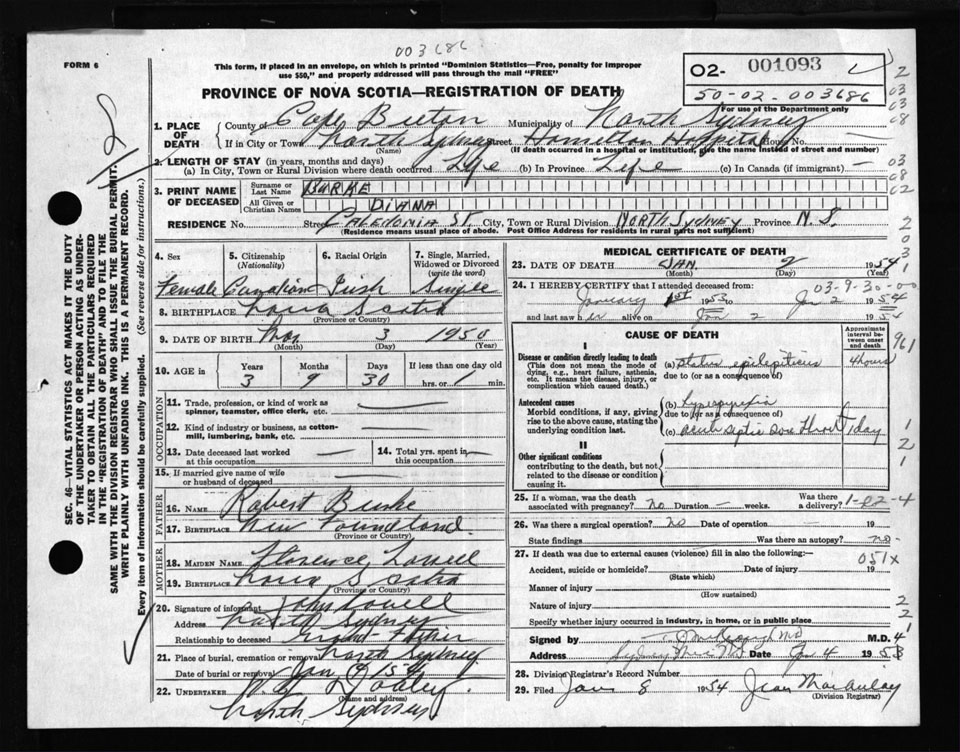 003686
FORM 6
This form, if placed in an envelope, on which is printed "Dominion Statistics—Free, penalty for improper
use $50," and properly addressed will pass through the mail "FREE"
O2- 001093
50-02-003686
For use of the Department only
PROVINCE OF NOVA SCOTIA—REGISTRATION OF DEATH
1. PLACE OF DEATH County of Cape Breton Municipality of North Sydney
If in City or Town North Sydney Street Hamilton Hospital House No. —
(Name) (If death occurred in a hospital or institution, give the name instead of street and number)
2. LENGTH OF STAY (in years, months and days)
(a) In City, Town or Rural Division where death occurred Life (b) In Province Life (c) In Canada (if immigrant) —
3. PRINT NAME OF DECEASED Surname or Last Name BURKE
All Given or Christian Names DIANA
RESIDENCE No. Street CALEDONIA ST. City, Town or Rural Division NORTH SYDNEY Province N.S.
(Residence means usual place of abode. Post Office Address for residents in rural parts not sufficient)
4. Sex 5. Citizenship (Nationality) 6. Racial Origin 7. Single, Married, Widowed or Divorced (write the word)
Female Canadian Irish Single
8. BIRTHPLACE Nova Scotia
(Province or Country)
9. DATE OF BIRTH Mar 3 1950
(Month) (Day) (Year)
10. AGE in Years Months Days If less than one day
3 9 30 hrs. or min.
11. Trade, profession, or kind of work as spinner, teamster, office clerk, etc. —
12. Kind of industry or business, as cotton-mill, lumbering, bank, etc. —
13. Date deceased last worked at this occupation — 14. Total yrs. spent in this occupation —
15. If married give name of wife or husband of deceased —
FATHER
16. NAME Robert Burke
17. BIRTHPLACE New Foundland
(Province or Country)
MOTHER
18. MAIDEN NAME Florence Lowell
19. BIRTHPLACE Nova Scotia
(Province or Country)
20. Signature of informant John Lowell
Address North Sydney
Relationship to deceased Grand-Father
21. Place of burial, cremation or removal North Sydney
Date of burial or removal Jan 19 54
22. UNDERTAKER
(Name and address)
North Sydney
MEDICAL CERTIFICATE OF DEATH
23. DATE OF DEATH JAN. 2 1954
(Month) (Day) (Year)
03-9-30-00
24. I HEREBY CERTIFY that I attended deceased from:
January 1st 1953 to Jan 2 1954
and last saw her alive on Jan 2 19
CAUSE OF DEATH
Approximate interval between onset and death
I
Disease or condition directly leading to death
(This does not mean the mode of dying, e.g., heart failure, asthenia, etc. It means the disease, injury, or complication which caused death.)
(a) status epilepticus 4 hours
due to (or as a consequence of)
Antecedent causes
Morbid conditions, if any, giving rise to the above cause, stating the underlying condition last.
(b) hyperpyrexia
due to (or as a consequence of)
(c) acute septic sore throat 1 day
II
Other significant conditions
contributing to the death, but not related to the disease or condition causing it.
25. If a woman, was the death associated with pregnancy? no Duration — weeks. Was there a delivery? 1-02-4
26. Was there a surgical operation? no Date of operation — 19
State findings Was there an autopsy? no
27. If death was due to external causes (violence) fill in also the following:—
051x
Accident, suicide or homicide? Date of injury 19
(State which)
Manner of injury
(How sustained)
Nature of injury
Specify whether injury occurred in industry, in home, or in public place
Signed by M.D.
Address Sydney Mines N.S. Date Jan 4 1953
28. Division Registrar's Record Number
29. Filed Jan 8 1954 Jean MacAulay
(Division Registrar)
SEC. 46—VITAL STATISTICS ACT MAKES IT THE DUTY
OF THE UNDERTAKER OR PERSON ACTING AS UNDER-
TAKER TO OBTAIN ALL THE PARTICULARS REQUIRED
IN THE "REGISTRATION OF DEATH" AND TO FILE THE
SAME WITH THE DIVISION REGISTRAR WHO SHALL ISSUE THE BURIAL PERMIT.
WRITE PLAINLY WITH UNFADING INK. THIS IS A PERMANENT RECORD.
Every item of information should be carefully supplied. (See reverse side for instructions.)